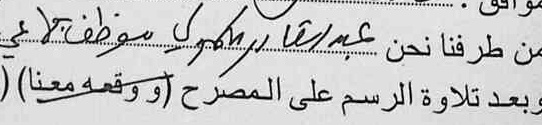 موافق
من طرفنا نحن عبد القادر موظف
وبعد تلاوة الرسم على المصرح (و وقعه معنا) (